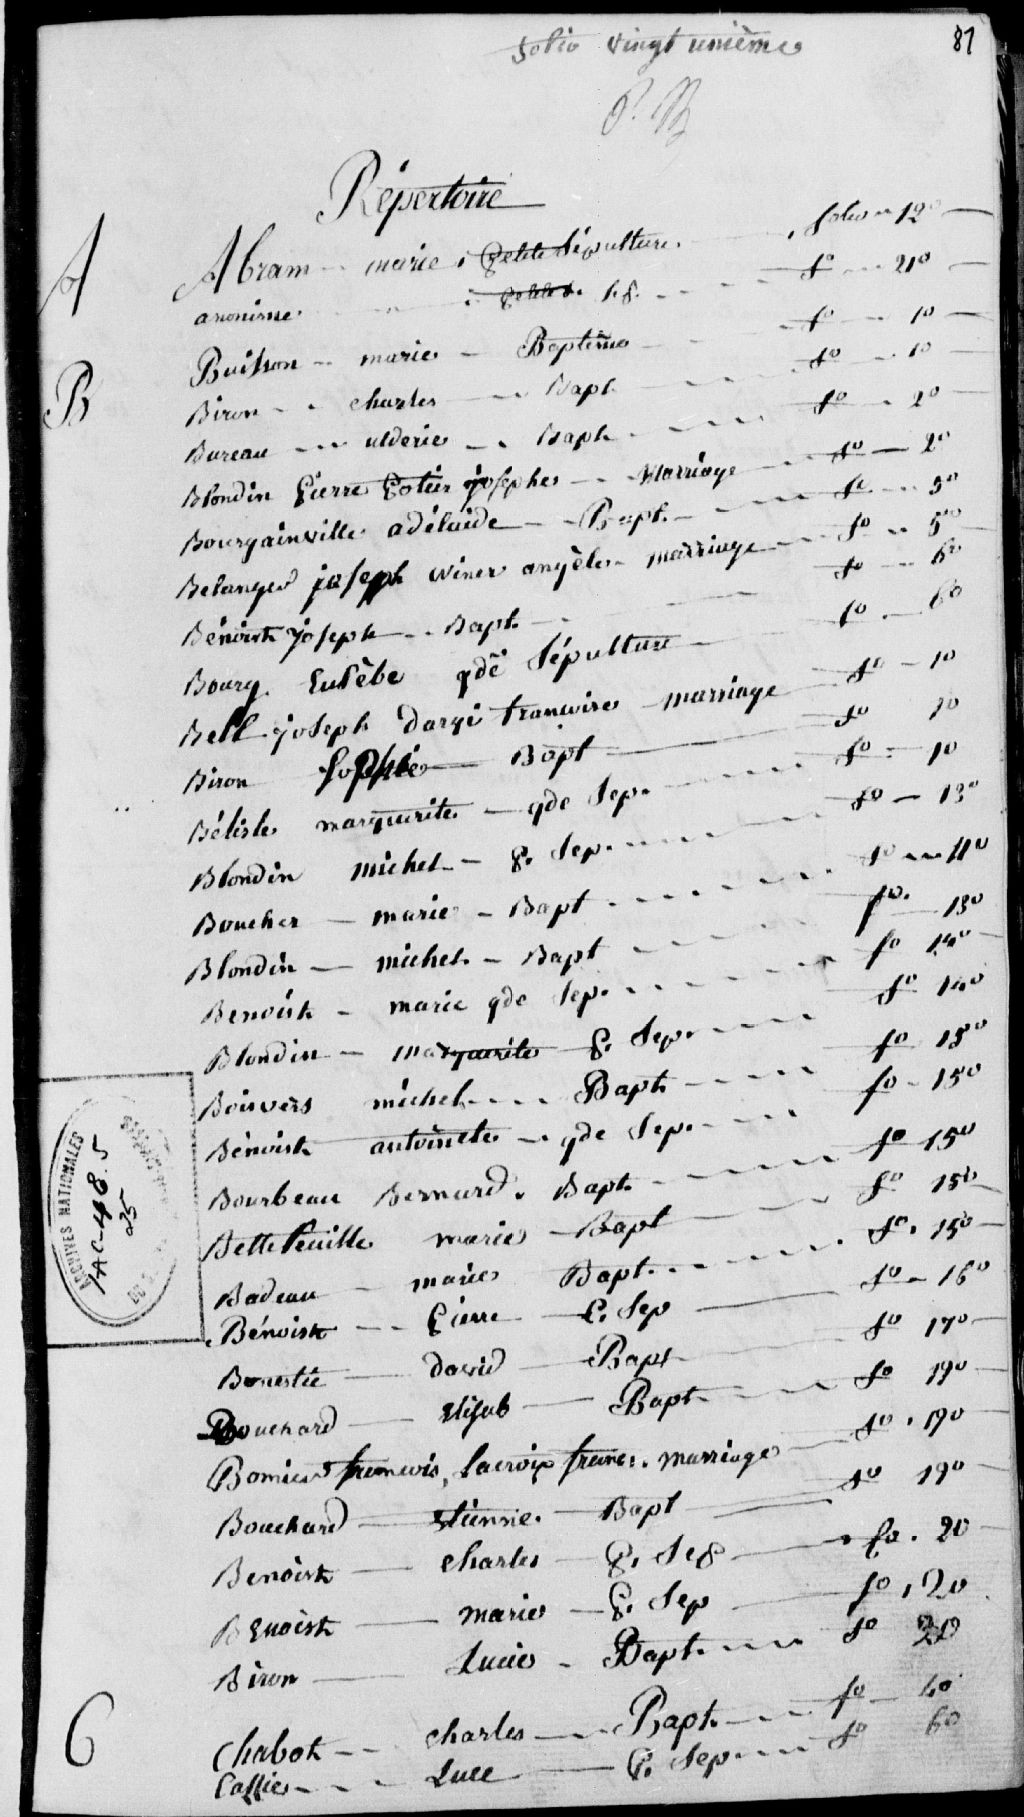 folio vingt unième
87
P. B
Répertoire
A
Abram - marie, petite Sépulture. folio 12º
anonime p. S. fº 21º
B
Buisson - marie - Baptême fº 1º
Biron - charles - Bapt. fº 1º
Bureau - ulderic - Bapt. fº 2º
Blondin pierre Potier josephe - Marriage fº 2º
Bourgainville adélaide - Bapt. fº 3º
Belanger joseph winer angèle - marriage fº 5º
Bénoist joseph - Bapt. fº 6º
Bourg Eusèbe gde Sépulture fº 6º
Bell joseph dargi francoise marriage fº 10
Biron Sophie Bapt fº 10
Bélisle marguerite - gde Sep. fº 10
Blondin michel - p. Sep. fº 13º
Boucher - marie - Bapt fº 11º
Blondin - michel - Bapt fº 13º
Benoist - marie gde Sep. fº 14º
Blondin - marguerite p. Sep. fº 14º
Boisvers michel Bapt. fº 15º
Bénoist antoinete - gde Sep. fº 15º
Bourbeau Bernard. Bapt. fº 15º
Bellefeuille marie - Bapt fº 15º
Badeau - marie Bapt. fº 15º
Bénoist - pierre - p. Sep fº 16º
david - Bapt fº 17º
Bouchard - elisab - Bapt. fº 19º
francois, Lacroix franc: marriage fº 19º
Bouchard - etienne. - Bapt fº 19º
Benoist - charles - p. Sep fº 20
Benoist - marie - p. Sep fº 20
Biron - Lucie - Bapt. fº 20
C
Chabot - charles - Bapt. fº 4º
Luce - p. Sep. fº 6º
ARCHIVES NATIONALES
1AC-48.5
25